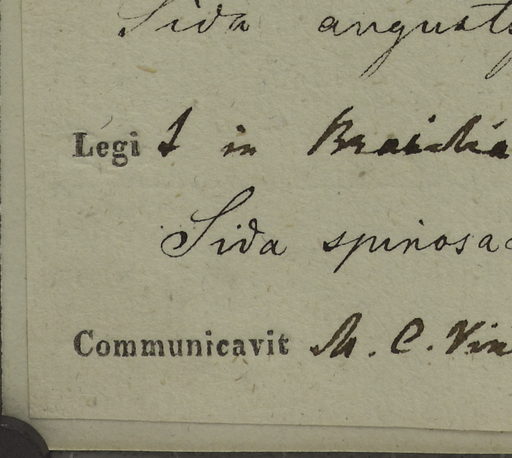 Sida angust
Legi t in Brasilia
Sida spinosa
Communicavit M. C. Vin